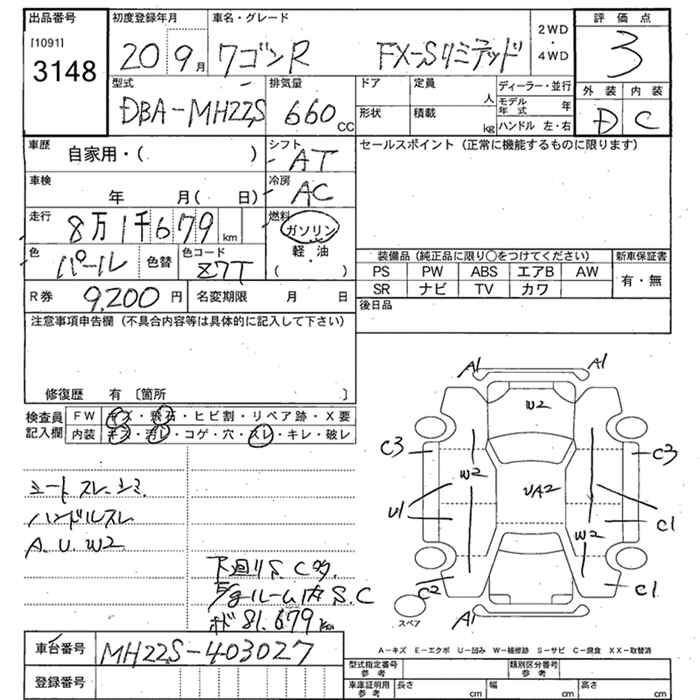 出品番号
[1091]
3148
初度登録年月
20 9月
車名・グレード
ワゴンR FX-Sリミテッド
2WD
・
4WD
評価点
3
外装 内装
D C
型式
DBA-MH22S
排気量
660 CC
ドア
形状
定員
人
積載
kg
ディーラー・並行
モデル年式 年
ハンドル 左・右
車歴
自家用・( )
シフト
AT
車検
年 月( 日)
冷房
AC
走行
8万1千679 km
燃料
ガソリン
・
軽・油
( )
色
パール
色替
色コード
Z7T
R券 9,200円
名変期限 月 日
セールスポイント(正常に機能するものに限ります)
装備品(純正品に限り○をつけてください)
PS PW ABS エアB AW
SR ナビ TV カワ
新車保証書
有・無
後日品
注意事項申告欄(不具合内容等は具体的に記入して下さい)
修復歴 有〔箇所 〕
検査員
記入欄
FW キズ・飛石・ヒビ割・リペア跡・X要
内装 キズ・汚レ・コゲ・穴・スレ・キレ・破レ
シートスレ、シミ
ハンドルスレ
A.U.W2
下廻りS.C多
E/gルーム内S.C
メーター 81,679km
A1
A1
W2
C3
C3
W2
UA2
U1
C1
W2
C2
C1
A1
スペア
A-キズ E-エクボ U-凹み W-補修跡 S-サビ C-腐食 XX-取替済
車台番号 MH22S-403027
登録番号
型式指定番号
参考
類別区分番号
参考
車庫証明用
参考
長さ cm
幅 cm
高さ cm